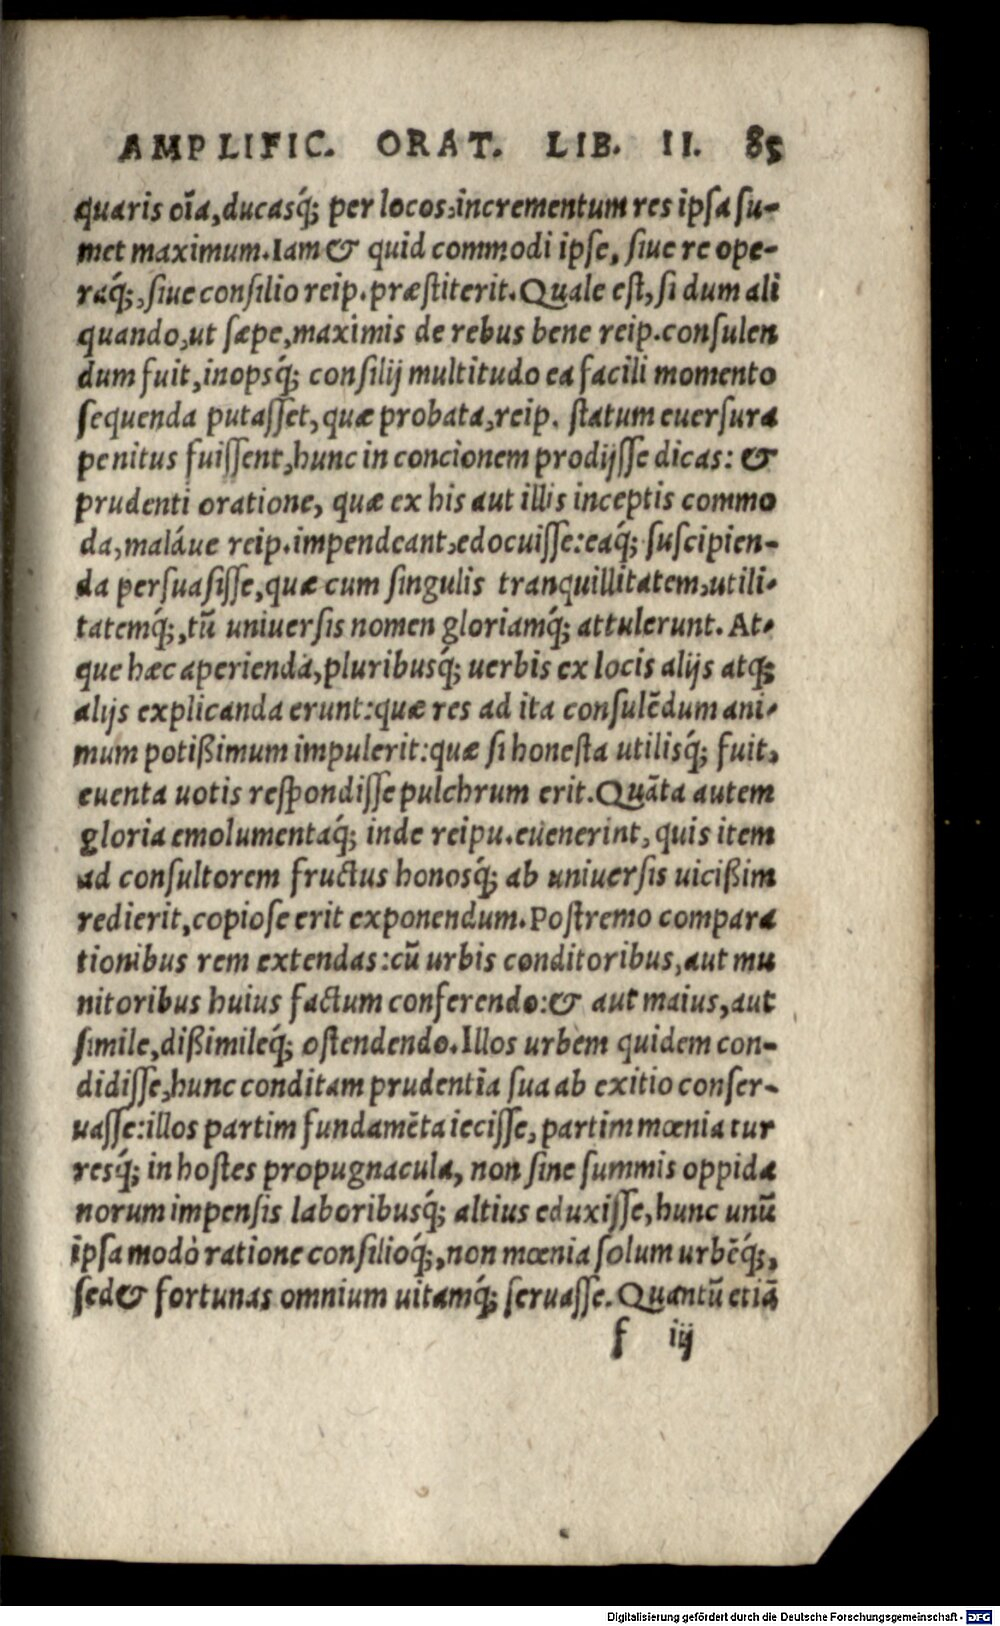 AMPLIFIC. ORAT. LIB. II. 85
quaris oīa, ducasq́; per locos, incrementum res ipsa su-
met maximum. Iam & quid commodi ipse, siue re ope-
raq́;, siue consilio reip. præstiterit. Quale est, si dum ali
quando, ut sæpe, maximis de rebus bene reip. consulen
dum fuit, inopsq́; consilij multitudo ea facili momento
sequenda putasset, quæ probata, reip. statum euersura
penitus fuissent, hunc in concionem prodijsse dicas: &
prudenti oratione, quæ ex his aut illis inceptis commo
da, maláue reip. impendeant, edocuisse: eaq́; suscipien-
da persuasisse, quæ cum singulis tranquillitatem, utili-
tatemq́;, tū uniuersis nomen gloriamq́; attulerunt. At-
que hæc aperienda, pluribusq́; uerbis ex locis alijs atq;
alijs explicanda erunt: quæ res ad ita consulēdum ani-
mum potißimum impulerit: quæ si honesta utilisq́; fuit,
euenta uotis respondisse pulchrum erit. Quāta autem
gloria emolumentaq́; inde reipu. euenerint, quis item
ad consultorem fructus honosq́; ab uniuersis uicißim
redierit, copiose erit exponendum. Postremo compara
tionibus rem extendas: cū urbis conditoribus, aut mu
nitoribus huius factum conferendo: & aut maius, aut
simile, dißimileq́; ostendendo. Illos urbem quidem con-
didisse, hunc conditam prudentia sua ab exitio conser-
uasse: illos partim fundamēta iecisse, partim mœnia tur
resq́; in hostes propugnacula, non sine summis oppida
norum impensis laboribusq́; altius eduxisse, hunc unū
ipsa modò ratione consilioq́;, non mœnia solum urbēq́;,
sed & fortunas omnium uitamq́; seruasse. Quantū etiā
f iij
Digitalisierung gefördert durch die Deutsche Forschungsgemeinschaft - DFG